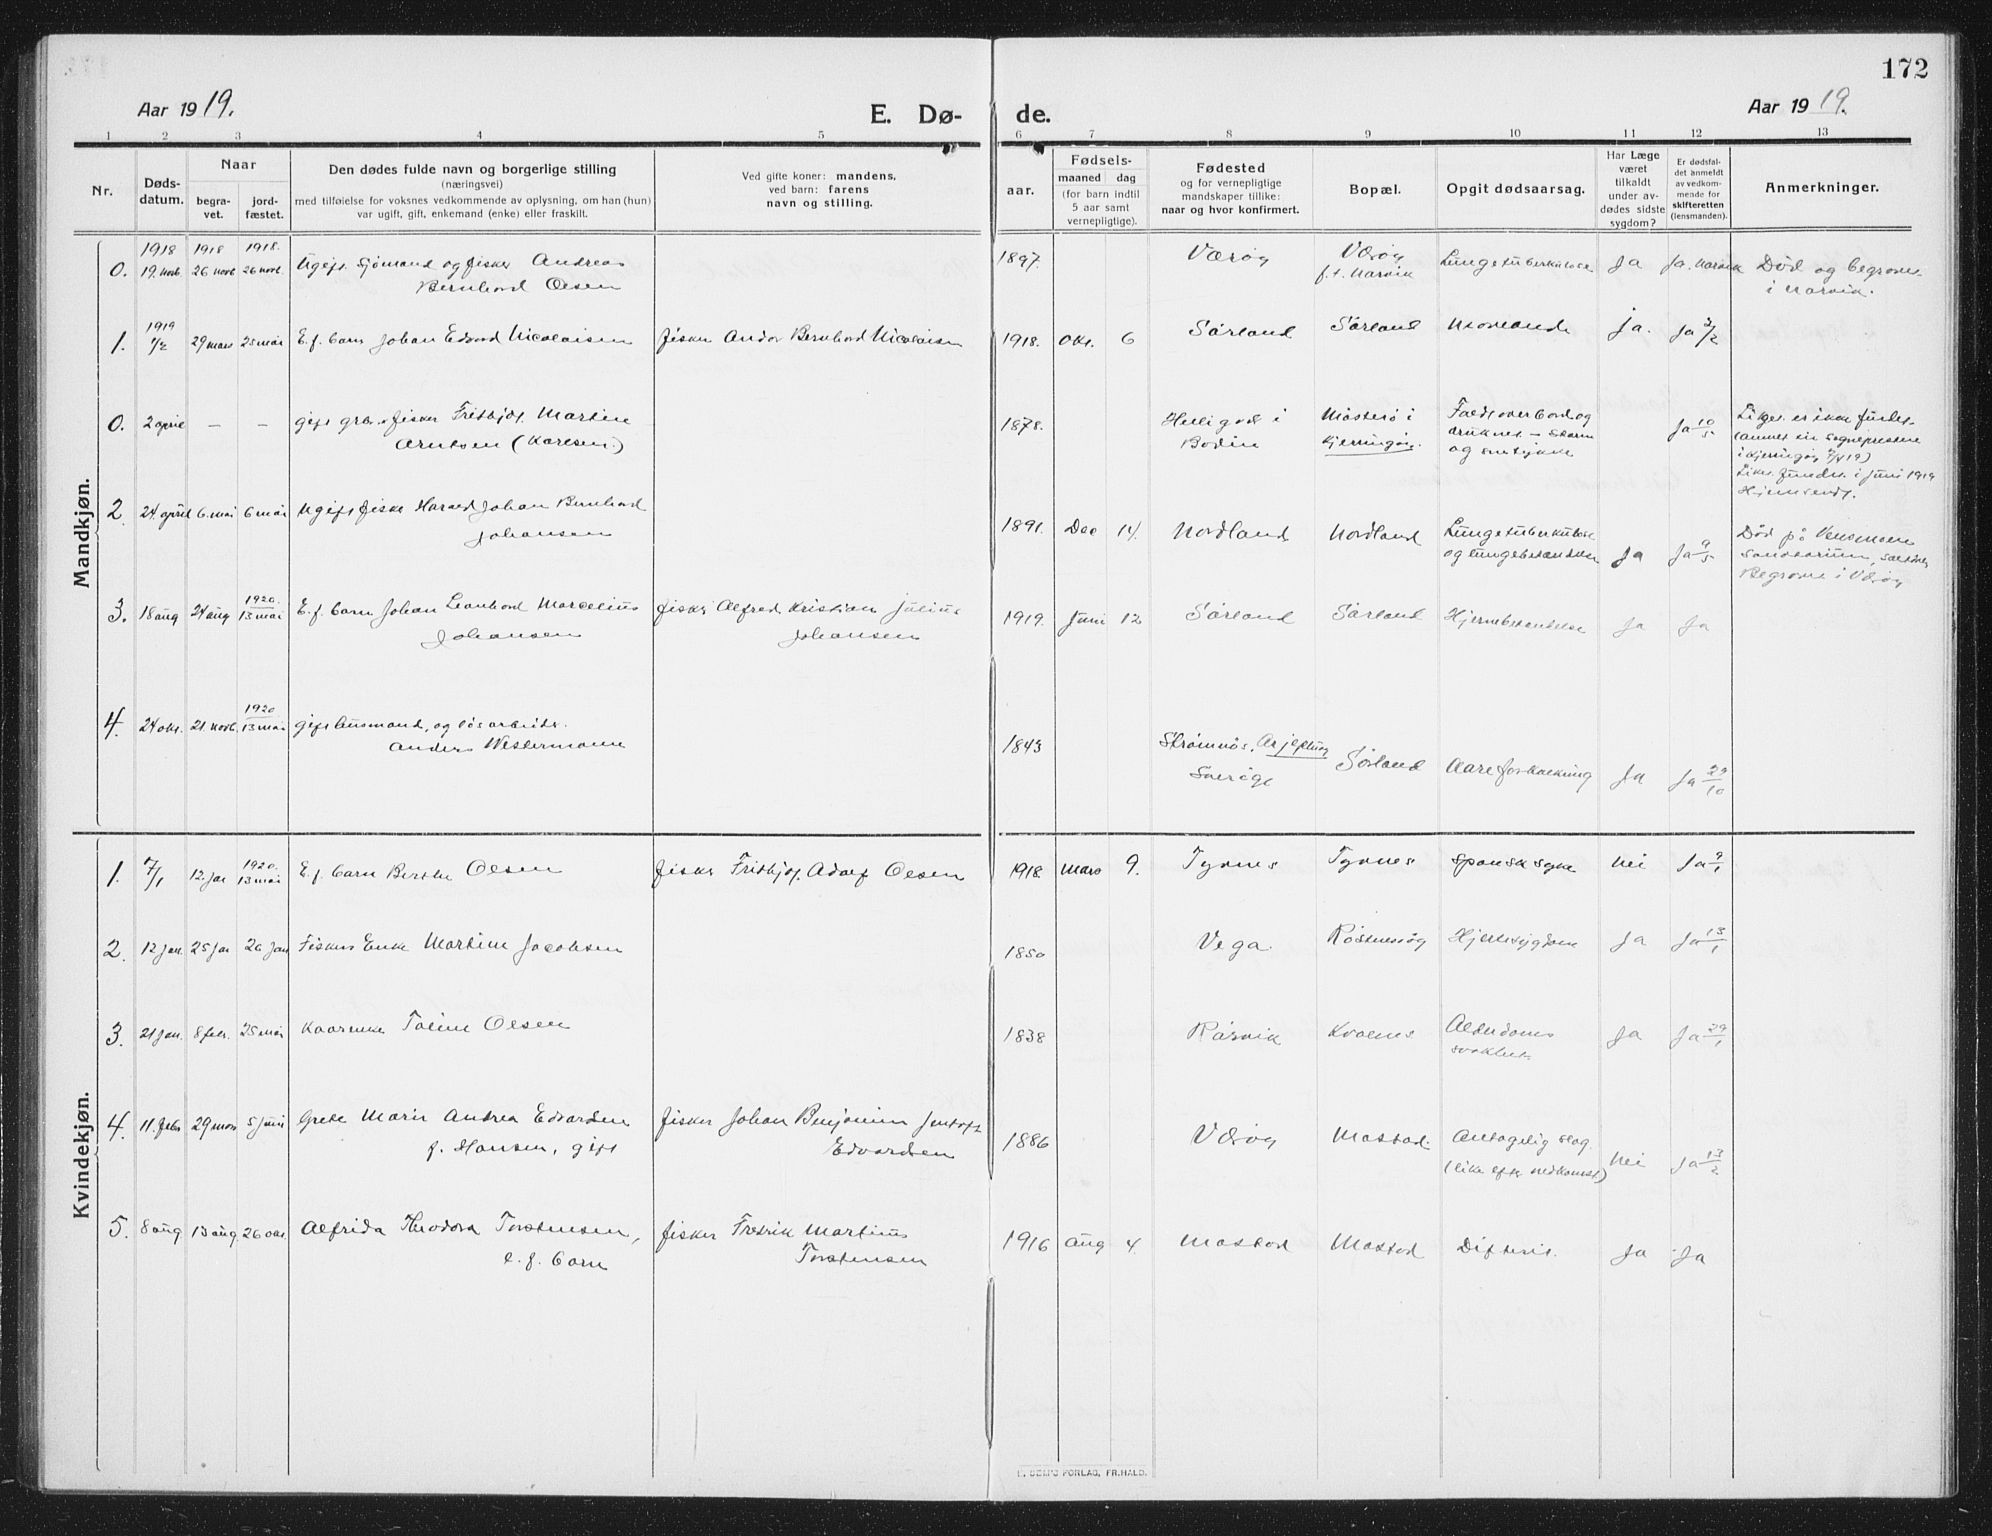 172
Aar 1919.
E. Dø-
de.
Aar 1919.
1 2 3 4 5 6 7 8 9 10 11 12 13
Nr.
Døds-
datum.
Naar
begra-
vet.
jord-
fæstet.
Den dødes fulde navn og borgerlige stilling
(næringsvei)
med tilføielse for voksnes vedkommende av oplysning, om han (hun)
var ugift, gift, enkemand (enke) eller fraskilt.
Ved gifte koner: mandens,
ved barn: farens
navn og stilling.
Fødsels-
aar.
maaned dag
(for barn indtil
5 aar samt
vernepligtige).
Fødested
og for vernepligtige
mandskaper tillike:
naar og hvor konfirmert.
Bopæl.
Opgit dødsaarsag.
Har Læge
været
tilkaldt
under av-
dødes sidste
sygdom?
Er dødsfal-
det anmeldt
av vedkom-
mende for
skifteretten
(lensmanden).
Anmerkninger.
Mandkjøn.
1918 1918 1918.
0. 19. novb. 26 novb. 26 novb. Ugift Sjømand og fisker Andreas
Bernhard Olsen
1897. Værøy Værøy
f.t. Narvik
Lungetuberkulose Ja Ja. Narvik Død og begravet
i Narvik.
1919
1. 1/2 29 mars 25 mai E. f. barn Johan Edvard Nicolaisen fisker Andor Bernhard Nicolaisen 1918. Okt. 6 Sørland Sørland ja. Ja 3/2
0. 2 april — — gift fisker Fritbjof Martin
Arntsen (Karlsen)
1878. Helligvær i
Bodin
i
Kjerringøy.
Faldt overbord og
druknet - storm
og snetykke
Ja 10/5
Liket er ikke fundet
i Kjerringøy
Liket fundet i juni 1919
Hjemsendt.
2. 24 april 6. mai 6 mai Ugift fisker Harald Johan Bernhard
Johansen
1891. Dec 14. Nordland Nordland Lungetuberkulose
og lungebetændelse
Ja Ja 9/5
Død på Vensmoen
Sanatorium, Saltdal
Begravet i Værøy
1920.
3. 18 aug 24 aug 13 mai E. f. barn Johan Leonhard Marcelius
Johansen
fisker Alfred Kristian Julius
Johansen
1919. Juni 12 Sørland Sørland Hjernebetændelse Ja Ja
1920
4. 24 okt. 21. novb. 13 mai gift husmand, og løsarbeider
Anders Westermann
1843 Strømnes, Arjeplung
Sverige
Sørland Aareforkalkning Ja Ja 29/10
Kvindekjøn.
1920.
1. 7/1 12. jan 13 mai E. f. barn Berthe Olsen fisker Fritbjof Adolf Olsen 1918. Mars 9. Tyvnes Tyvnes Spansk syke Nei Ja 9/1
2. 12 jan. 25 jan 26 jan Fiskers Enke Martine Jacobsen 1850 Vega Røstnesvåg Hjertesygdom Ja Ja 13/1
3. 21 jan. 8 febr. 25 mai Kaarenke Toline Olsen 1838 Rørvik Kvalnes Alderdoms
svakhet
Ja Ja 29/1
4. 11. febr 29 mars 5 juni Grete Marie Andrea Edvardsen
f. Hansen, gift
fisker Johan Benjamin Jentoft
Edvardsen
1886 Værøy Mostad. Antagelig slag
(like efter nedkomst)
Nei Ja 13/2
5. 8 aug 13 aug. 26 okt. Alfrida Theodora Torstensen,
e. f. barn
fisker Fredrik Martinus
Torstensen
1916 Aug 4. Mostad Mostad Difterit. Ja Ja
FORLAG, FR.HALD.